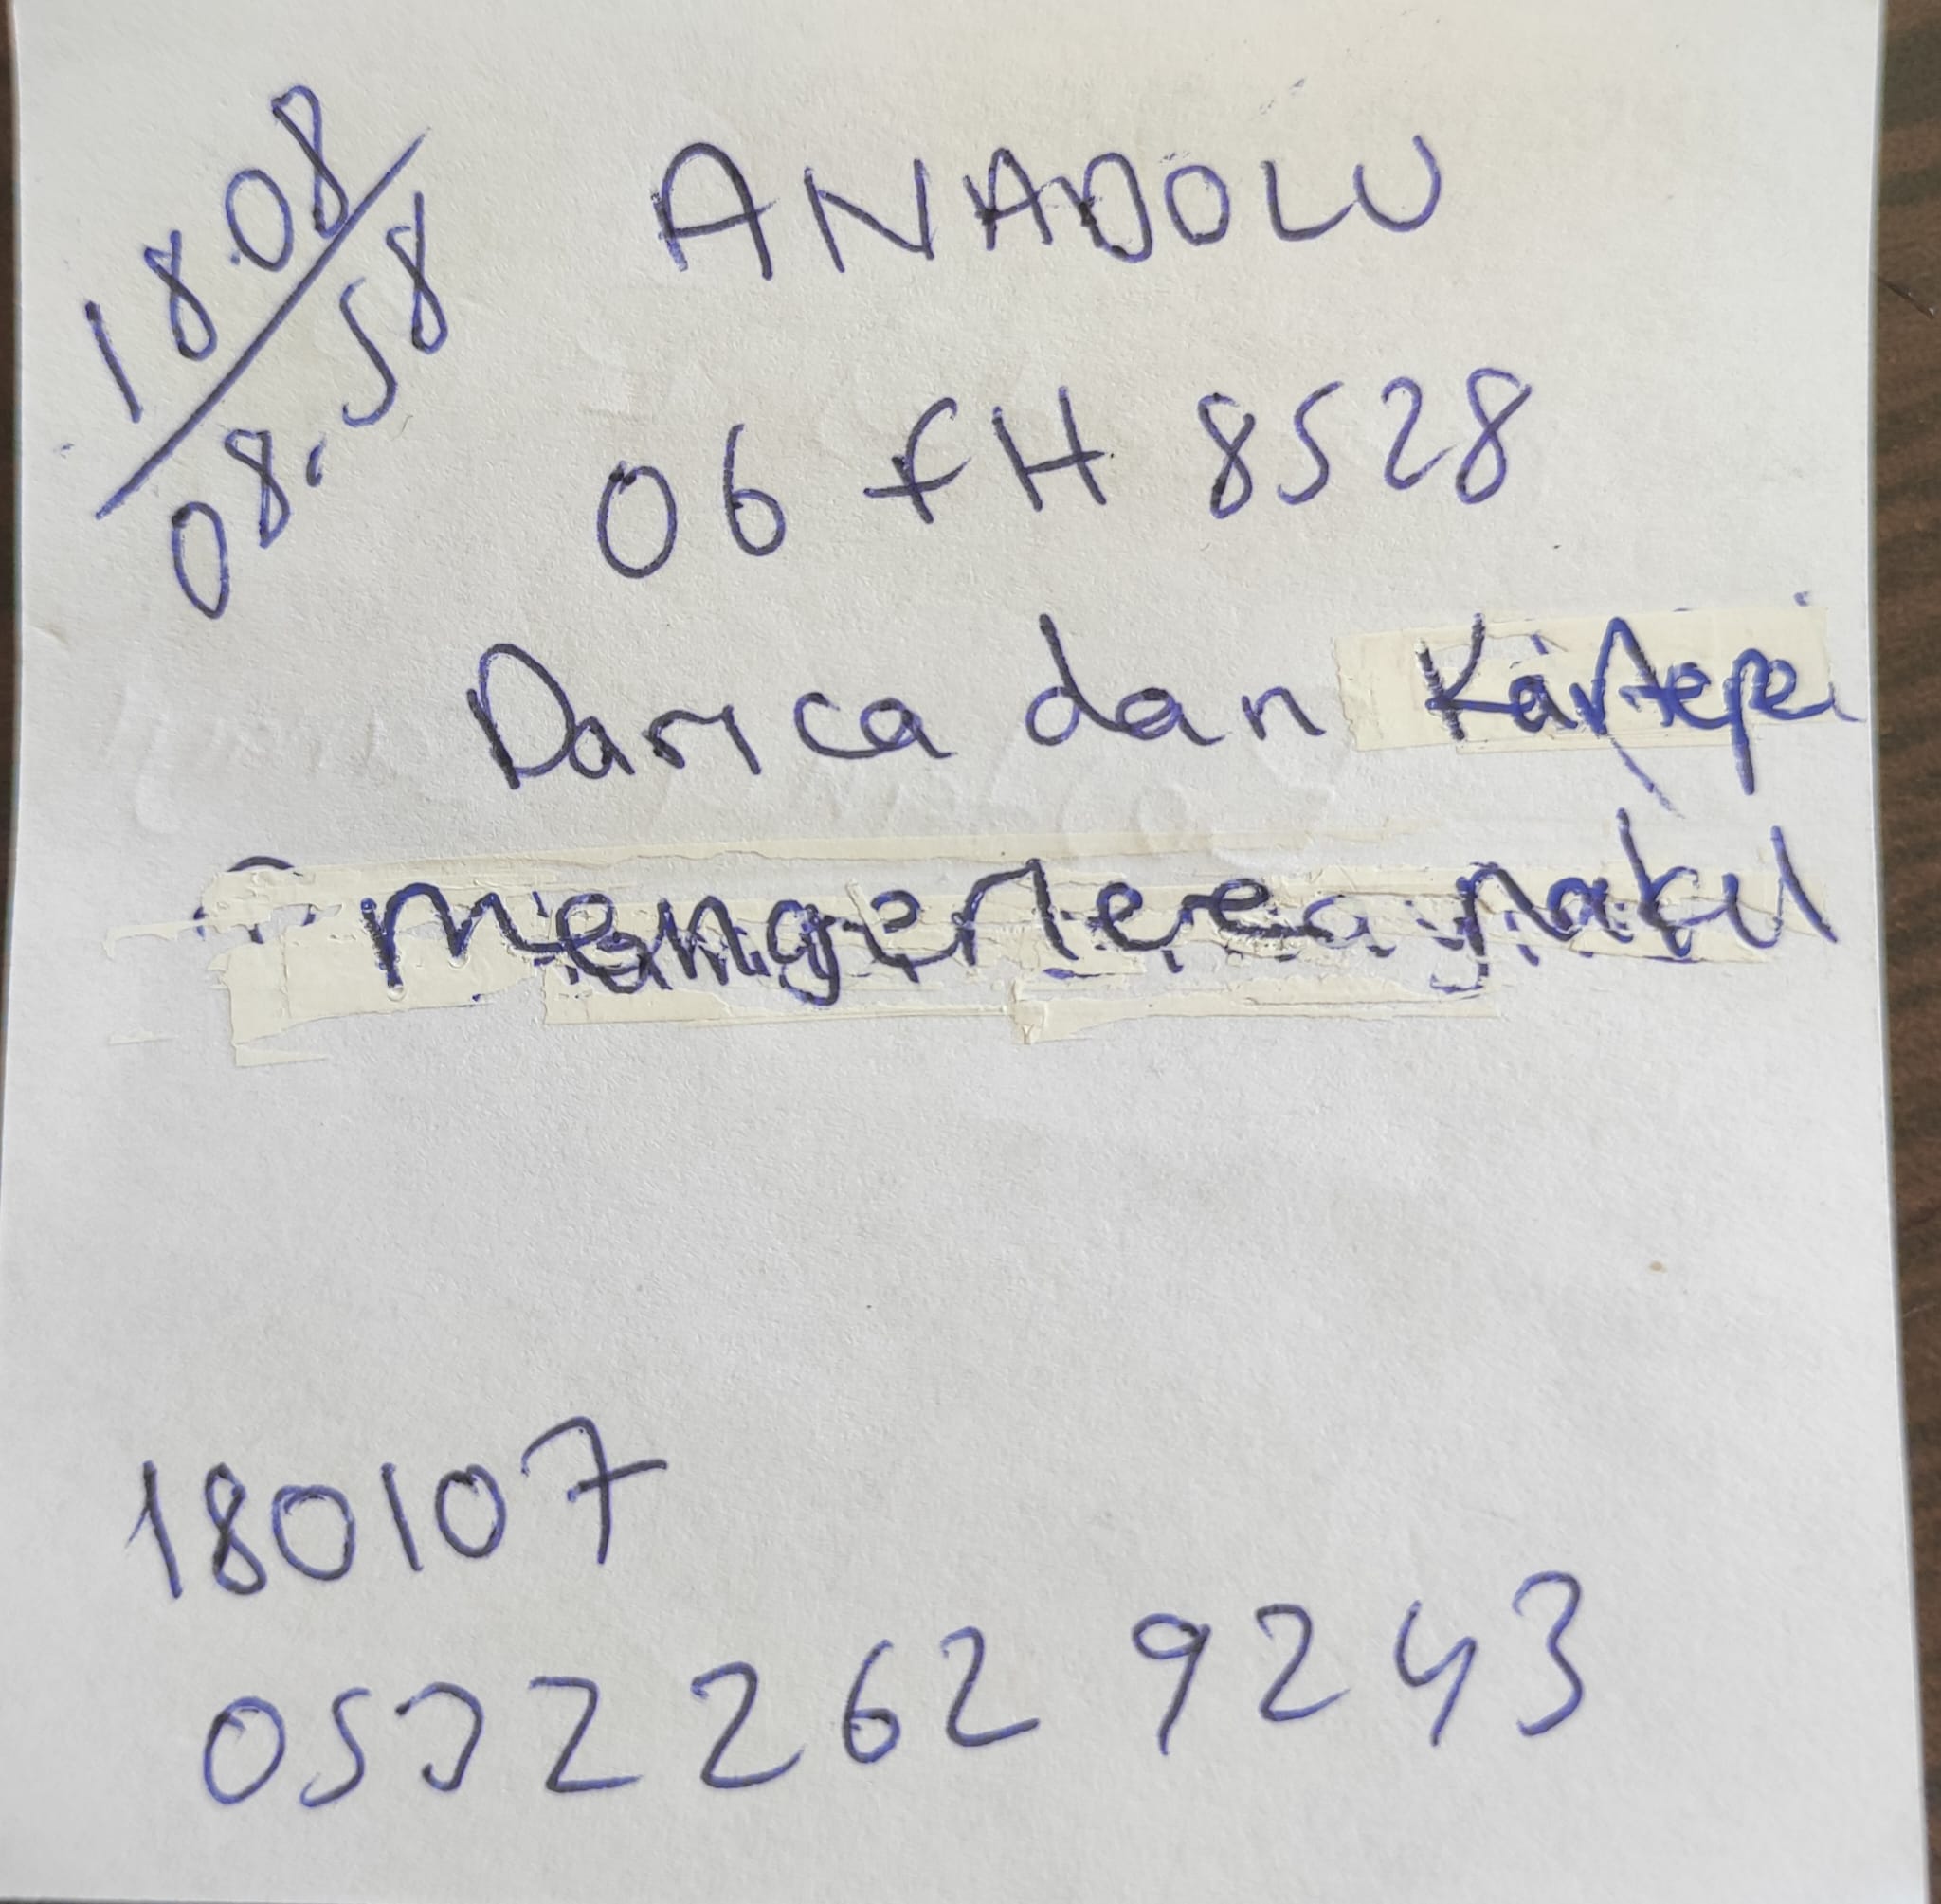 18.08
08.58
ANADOLU
06 FH 8528
Darıca dan Kartepe
mengerlere nakil
180107
0532 262 9243